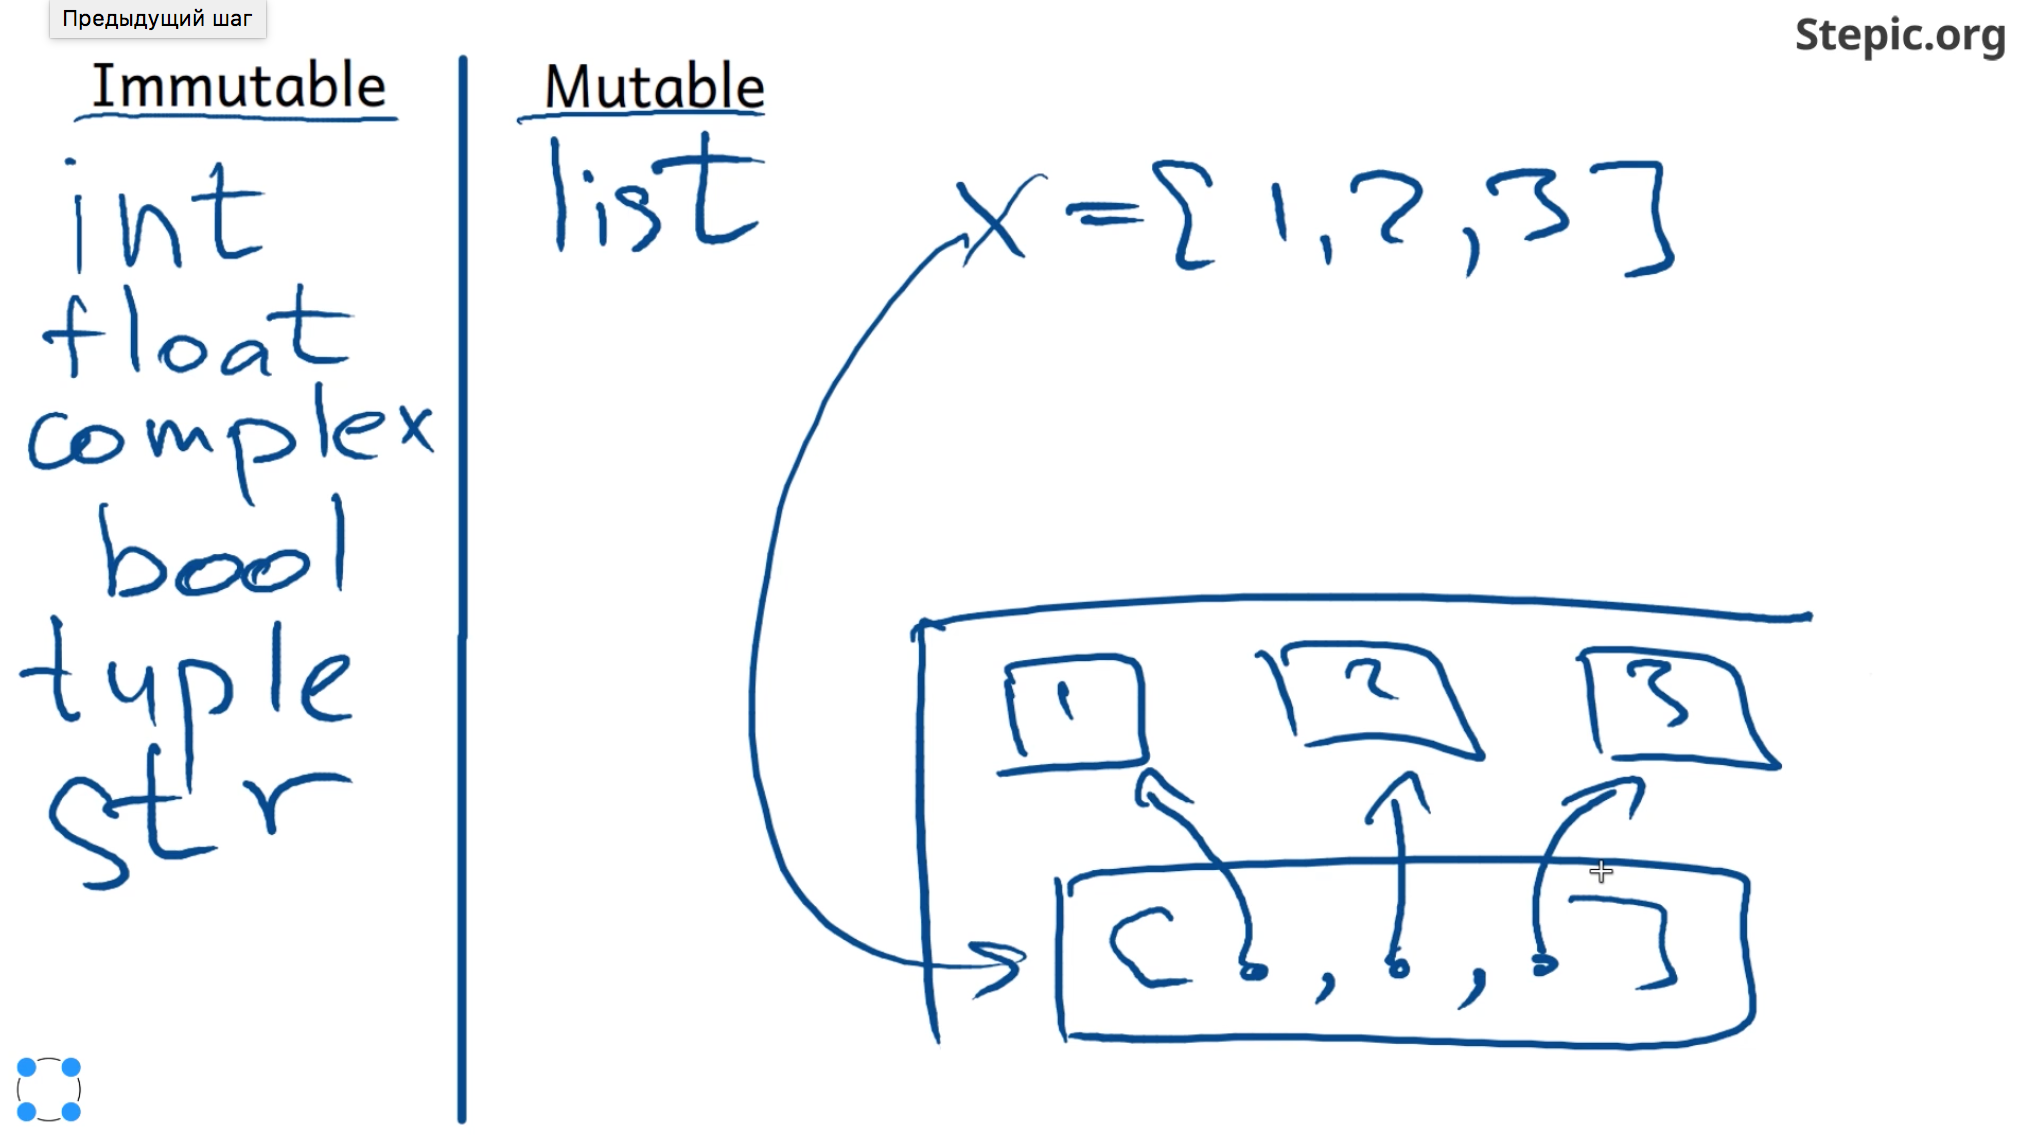 Предыдущий шаг
Stepic.org
Immutable
int
float
complex
bool
tuple
str
Mutable
list
x = [1, 2, 3]
1 2 3
[ , , ]